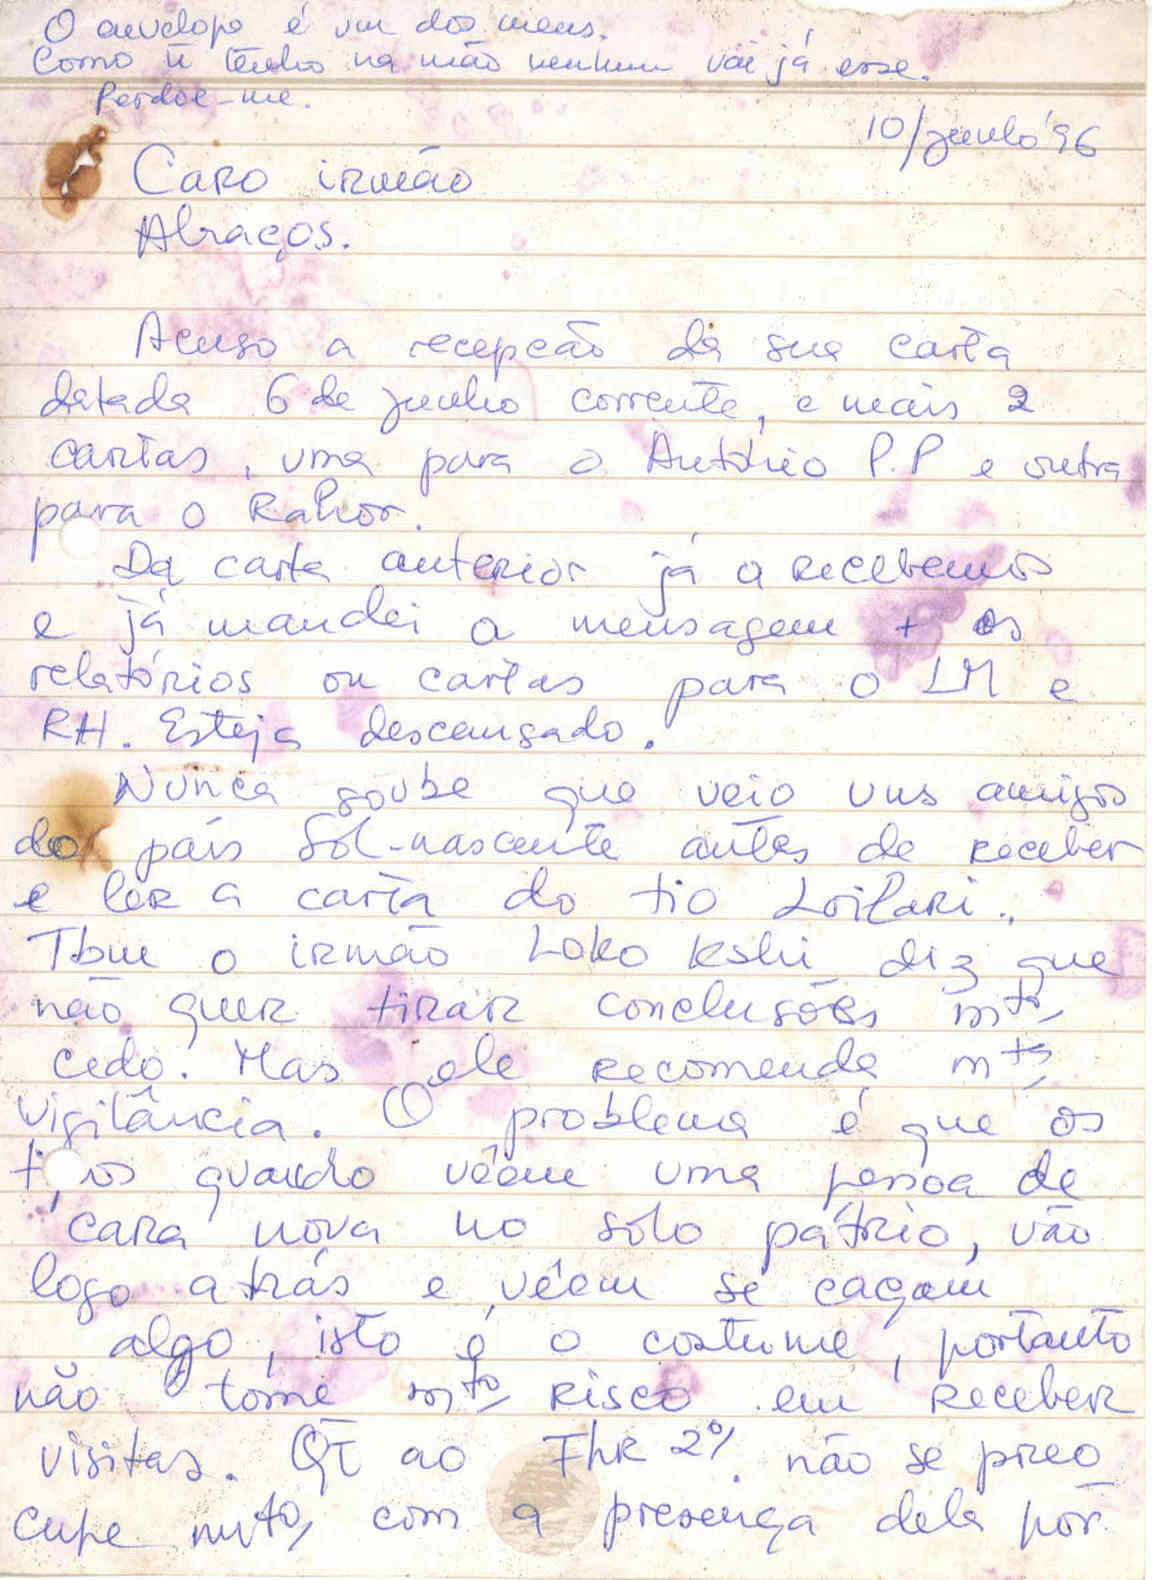 O envelope é um dos meus.
Como ñ tenho na mão nenhum vai já esse.
Perdoe-me.
10/junho '96
Caro irmão
Abraços.
Acuso a recepção da sua carta
datada 6 de junho corrente, e mais 2
cartas, uma para o António P.P e outra
para o
Da carta anterior já a recebemos
e já mandei a mensagem + os
relatórios ou cartas para o LM e
RH. Esteja descansado.
Nunca soube que veio uns amigos
do país Sol-nascente antes de receber
e ler a carta do tio Loilari.
Tbm o irmão Loko Keshi diz que
não quer tirar conclusões mto
cedo. Mas ele recomenda mta
vigilância. O problema é que os
quando vêem uma pessoa de
cara nova no solo pátrio, vão
logo atrás e vêem se caçam
algo, isto é o costume, portanto
não tome mto risco em receber
visitas. QT ao não se preo
cupe mto, com a presença dela por